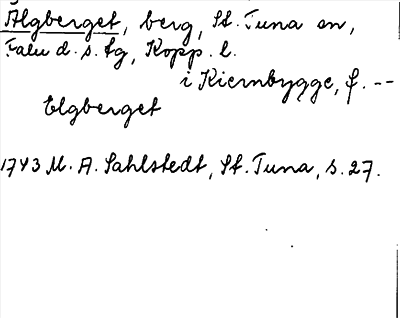 Älgberget, berg, St. Tuna sn,
Falu d. s. tg, Kopp. l.
i Kiernbygge, f. --
Elgberget
1743 M. A. Sahlstedt, St. Tuna, s. 27.